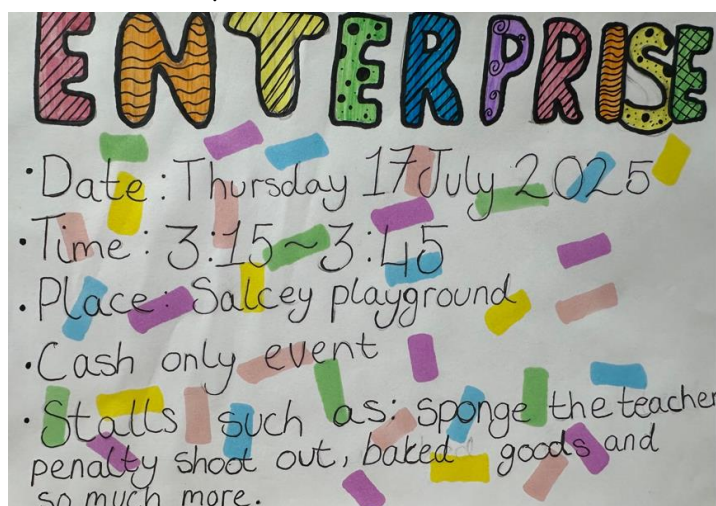 ENTERPRISE
• Date: Thursday 17 July 2025
• Time: 3:15~3:45
• Place: Salcey playground
• Cash only event
• Stalls such as: sponge the teacher
penalty shoot out, baked goods and
so much more.